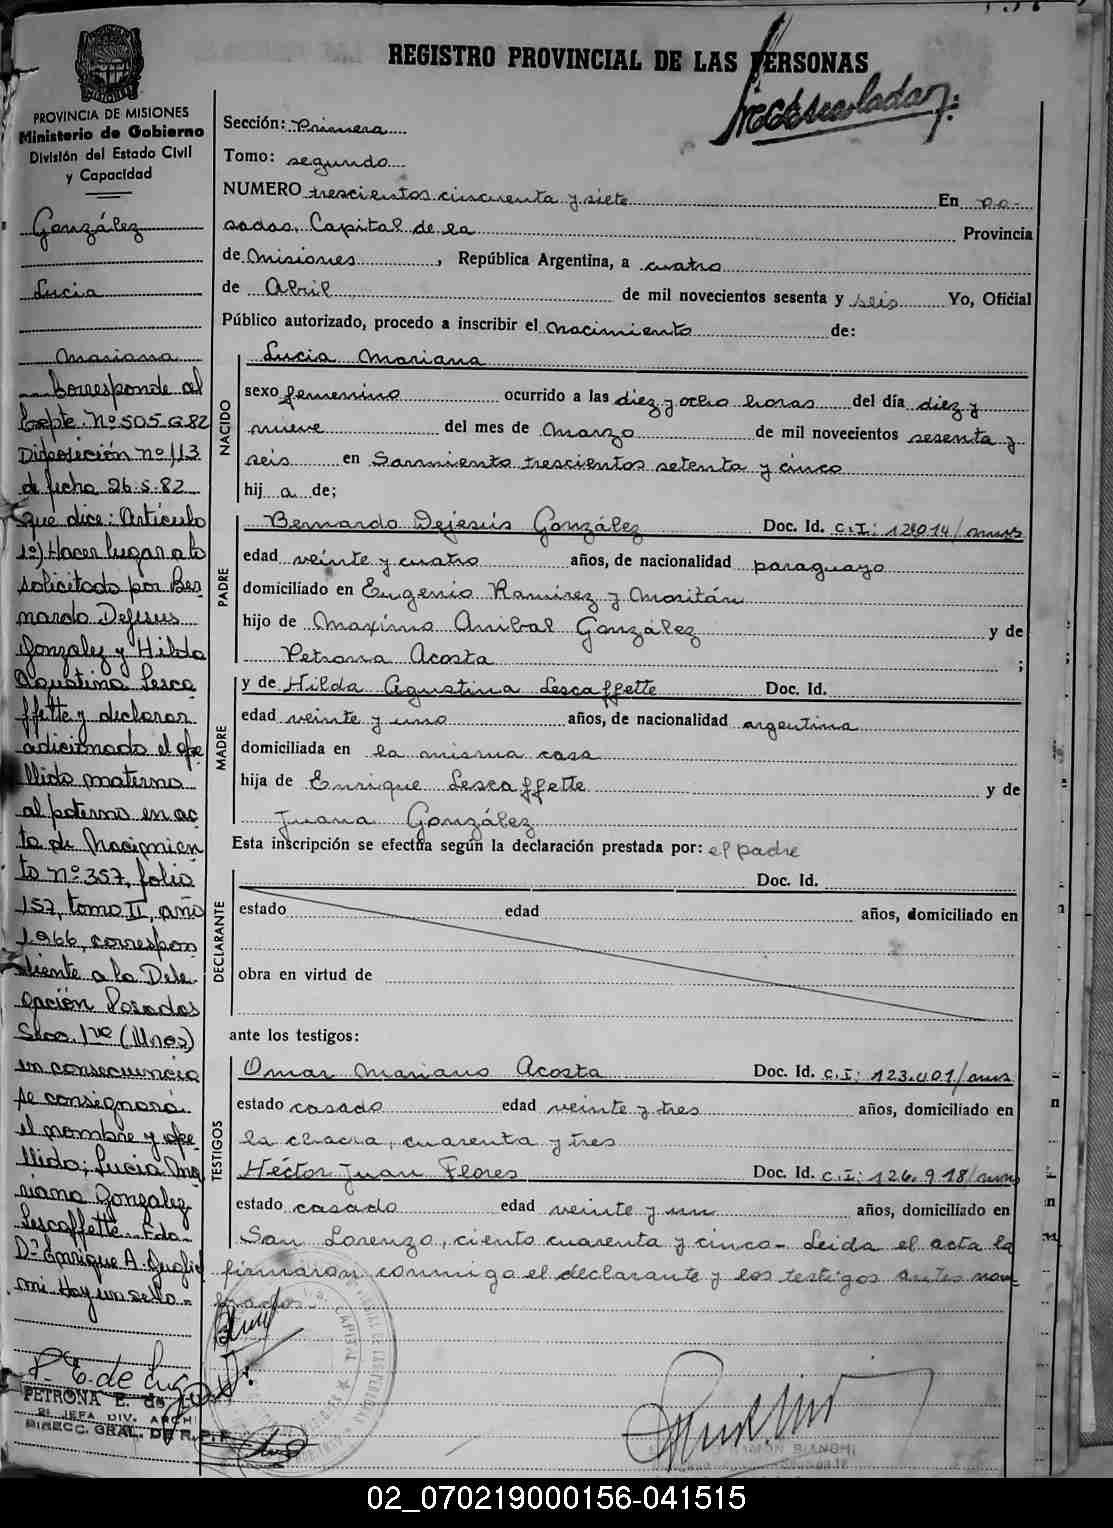 REGISTRO PROVINCIAL DE LAS PERSONAS
PROVINCIA DE MISIONES
Ministerio de Gobierno
División del Estado Civil
y Capacidad
González
Lucia
Mariana
Corresponde al
Expte. Nº 505 G 82
Disposición nº 113
de fecha 26.5.82
que dice: Artículo
1º) Hacer lugar a lo
solicitado por Ber-
nardo Dejesus
Gonzalez y Hilda
Agustina Lesca
ffette y declarar
adicionado el ape
llido materno
al paterno en ac
ta de Nacimien
to nº 357, folio
157, tomo II, año
1966, correspon
diente a la Dele
gación Posadas
Secc. 1ra (Unos)
en consecuencia
se consignará
el nombre y ape
llido: Lucia Ma
riana Gonzalez
Lescaffette. Fdo.
Dº Enrique A. Guglie
mi. Hay un sello.-
P. E. de Lug
PETRONA E. de
2ª JEFA DIV. ARCHI
DIRECC. GRAL. DE R.P.P.
Sección: Primera
Tomo: segundo
NUMERO trescientos cincuenta y siete En Po-
sadas, Capital de la Provincia
de Misiones, República Argentina, a cuatro
de Abril de mil novecientos sesenta y seis Yo, Oficial
Público autorizado, procedo a inscribir el nacimiento de:
NACIDO
Lucia Mariana
sexo femenino ocurrido a las diez y ocho horas del día diez y
nueve del mes de Marzo de mil novecientos sesenta y
seis en Sarmiento trescientos setenta y cinco
hij a de;
PADRE
Bernardo Dejesús González Doc. Id. C.I: 128014/
edad veinte y cuatro años, de nacionalidad paraguayo
domiciliado en Eugenio Ramírez y Moritán
hijo de Maximo Anibal González y de
Petrona Acosta ;
MADRE
y de Hilda Agustina Lescaffette Doc. Id.
edad veinte y uno años, de nacionalidad argentina
domiciliada en la misma casa
hija de Enrique Lescaffette y de
Juana González
Esta inscripción se efectúa según la declaración prestada por: el padre
DECLARANTE
Doc. Id.
estado edad años, domiciliado en
obra en virtud de
ante los testigos:
TESTIGOS
Omar Mariano Acosta Doc. Id. C.I: 123.001/
estado casado edad veinte y tres años, domiciliado en
la chacra, cuarenta y tres
Héctor Juan Flores Doc. Id. C.I: 126.918/
estado casado edad veinte y un años, domiciliado en
San Lorenzo, ciento cuarenta y cinco- Leida el acta la
firmaron conmigo el declarante y los testigos antes nom-
brados.-
CAPITAL
BIANCHI
02_070219000156-041515